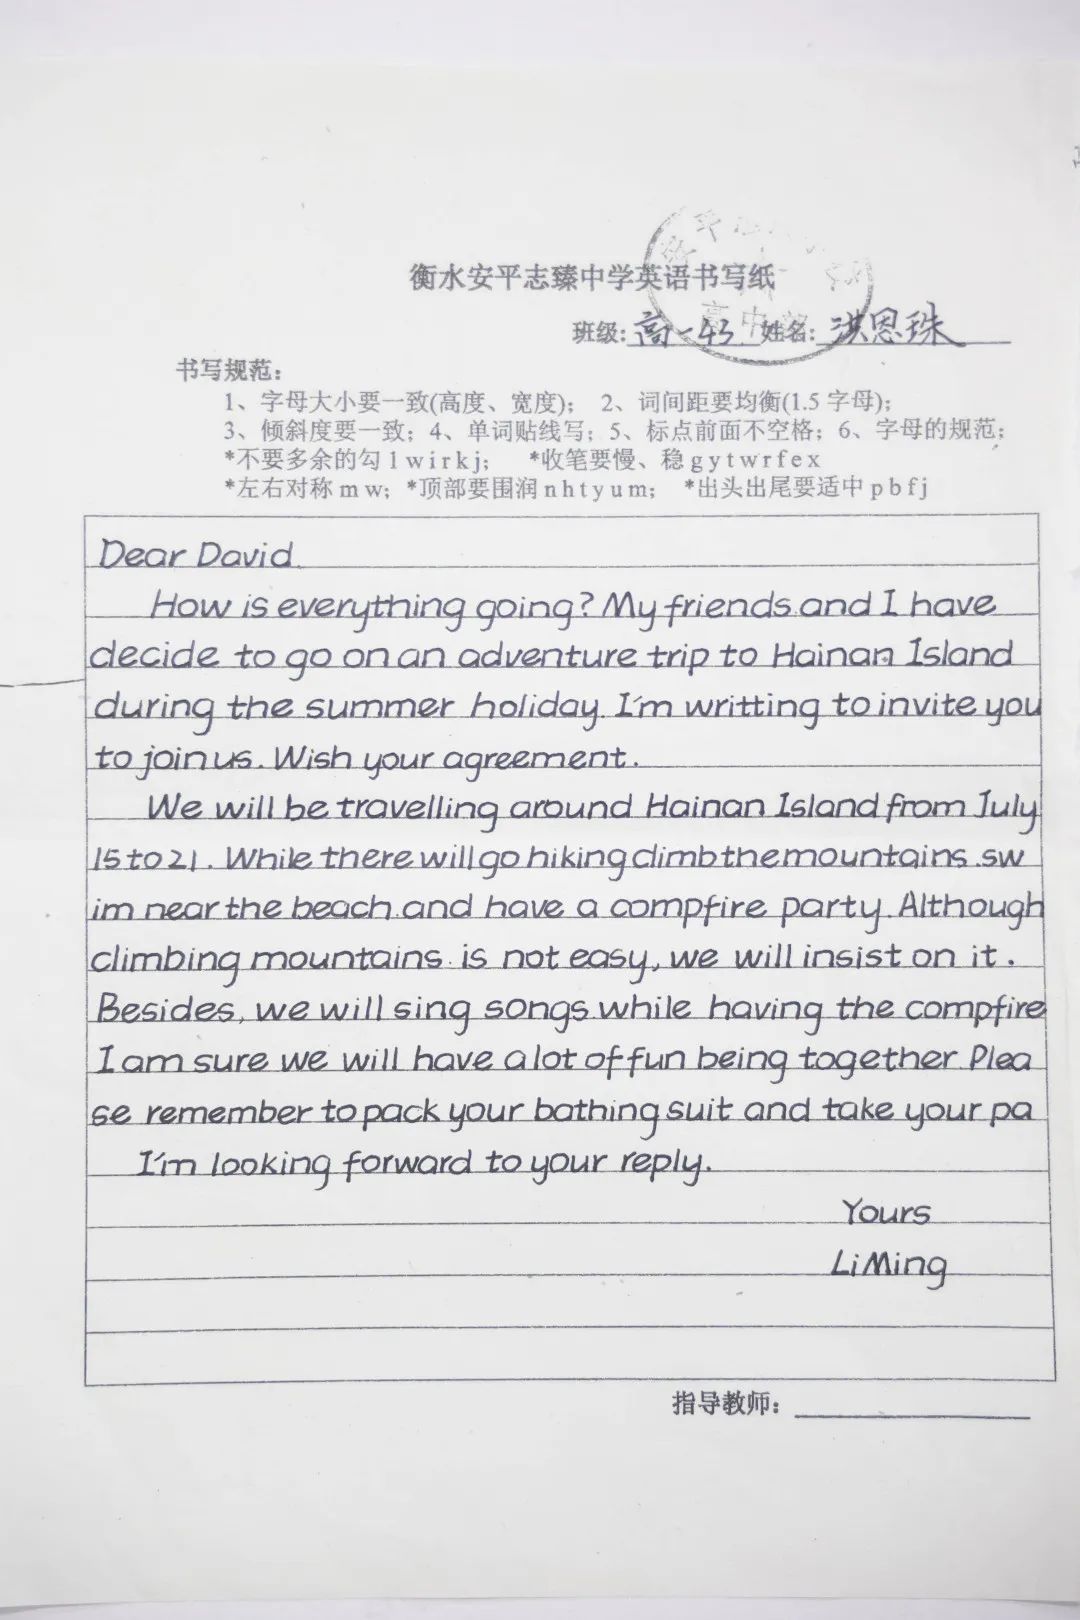 衡水安平志臻中学英语书写纸
班级:高一43 姓名:洪恩珠
书写规范:
1、字母大小要一致(高度、宽度); 2、词间距要均衡(1.5 字母);
3、倾斜度要一致; 4、单词贴线写; 5、标点前面不空格; 6、字母的规范;
*不要多余的勾 l w i r k j; *收笔要慢、稳 g y t w r f e x
*左右对称 m w; *顶部要围润 n h t y u m; *出头出尾要适中 p b f j
Dear David.
How is everything going? My friends and I have
decide to go on an adventure trip to Hainan Island
during the summer holiday. I'm writting to invite you
to join us. Wish your agreement.
We will be travelling around Hainan Island from July
15 to 21. While there will go hiking climb the mountains. sw
im near the beach and have a compfire party. Although
climbing mountains is not easy, we will insist on it.
Besides, we will sing songs while having the compfire
I am sure we will have a lot of fun being together. Plea
se remember to pack your bathing suit and take your pa
I'm looking forward to your reply.
Yours
LiMing
指导教师: